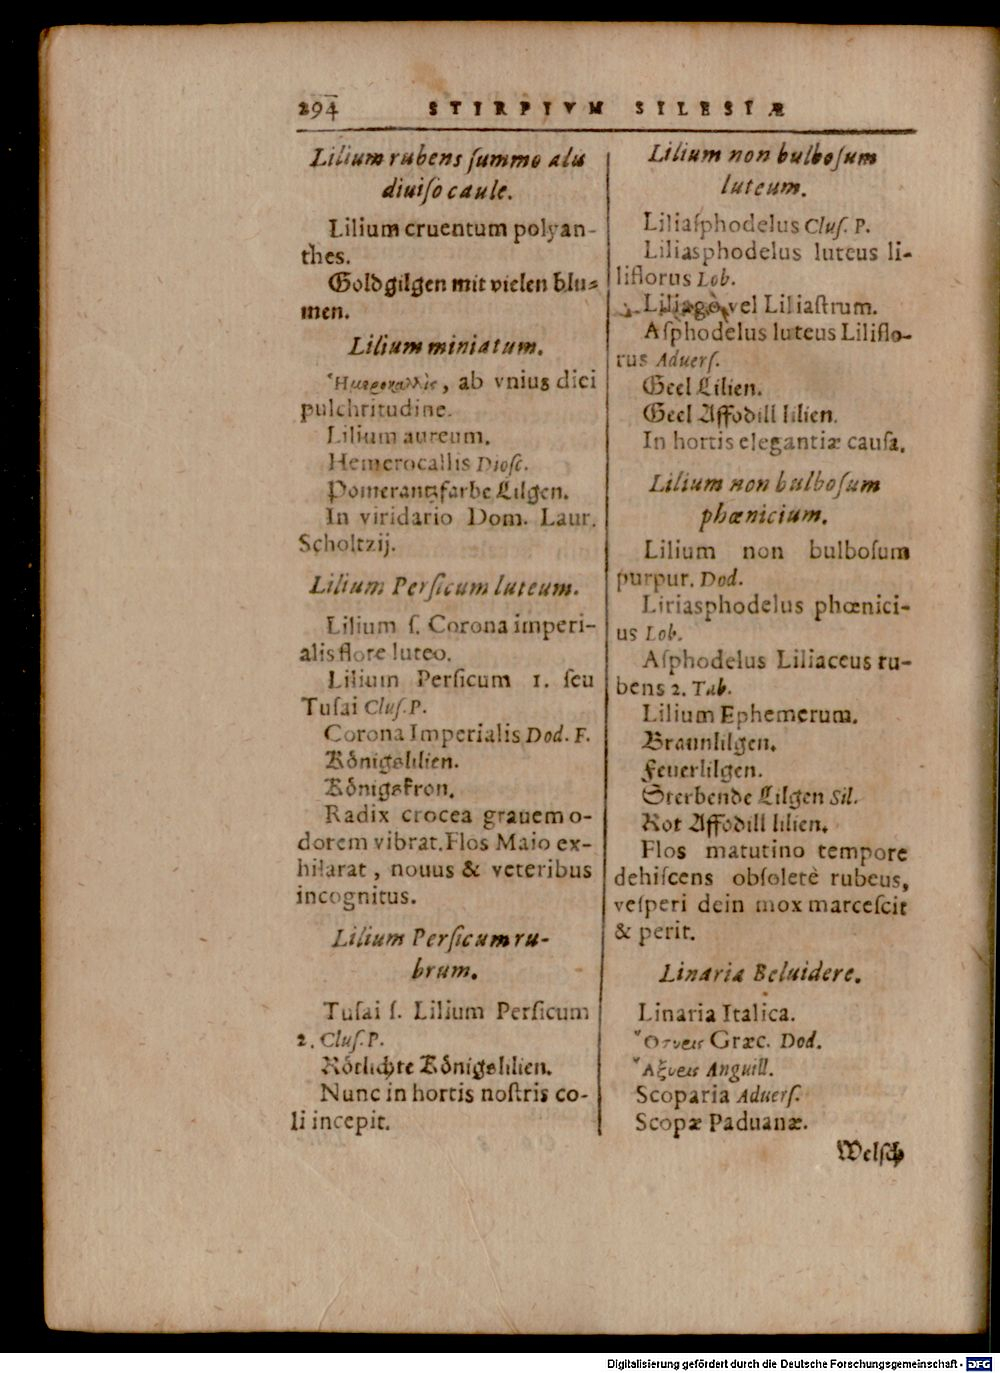 294 STIRPIVM SILESIÆ
Lilium rubens ſummo alis
diuiſo caule.
Lilium cruentum polyan-
thes.
Goldgilgen mit vielen blu-
men.
Lilium miniatum.
Ἡμεροκαλλὶς, ab vnius diei
pulchritudine.
Lilium aureum.
Hemerocallis Dioſc.
Pomerantzfarbe Lilgen.
In viridario Dom. Laur.
Scholtzij.
Lilium Perſicum luteum.
Lilium ſ. Corona imperi-
alis flore luteo.
Lilium Perſicum 1. ſeu
Tuſai Cluſ. P.
Corona Imperialis Dod. F.
Königslilien.
Königskron.
Radix crocea grauem o-
dorem vibrat. Flos Maio ex-
hilarat, nouus & veteribus
incognitus.
Lilium Perſicum ru-
brum.
Tuſai ſ. Lilium Perſicum
2. Cluſ. P.
Rötlichte Königslilien.
Nunc in hortis noſtris co-
li incepit.
Lilium non bulboſum
luteum.
Liliaſphodelus Cluſ. P.
Liliasphodelus luteus li-
liflorus Lob.
Liliago vel Liliaſtrum.
Aſphodelus luteus Liliflo-
rus Aduerſ.
Geel Lilien.
Geel Affodill lilien.
In hortis elegantiæ cauſa.
Lilium non bulboſum
phœnicium.
Lilium non bulboſum
purpur. Dod.
Liriasphodelus phœnici-
us Lob.
Aſphodelus Liliaceus ru-
bens 2. Tab.
Lilium Ephemerum.
Braunlilgen.
Feuerlilgen.
Sterbende Lilgen Sil.
Rot Affodill lilien.
Flos matutino tempore
dehiſcens obſoletè rubeus,
veſperi dein mox marceſcit
& perit.
Linaria Beluidere.
Linaria Italica.
Ὄσυρις Græc. Dod.
Ἄξυρις Anguill.
Scoparia Aduerſ.
Scopæ Paduanæ.
Welſch
Digitalisierung gefördert durch die Deutsche Forschungsgemeinschaft - DFG